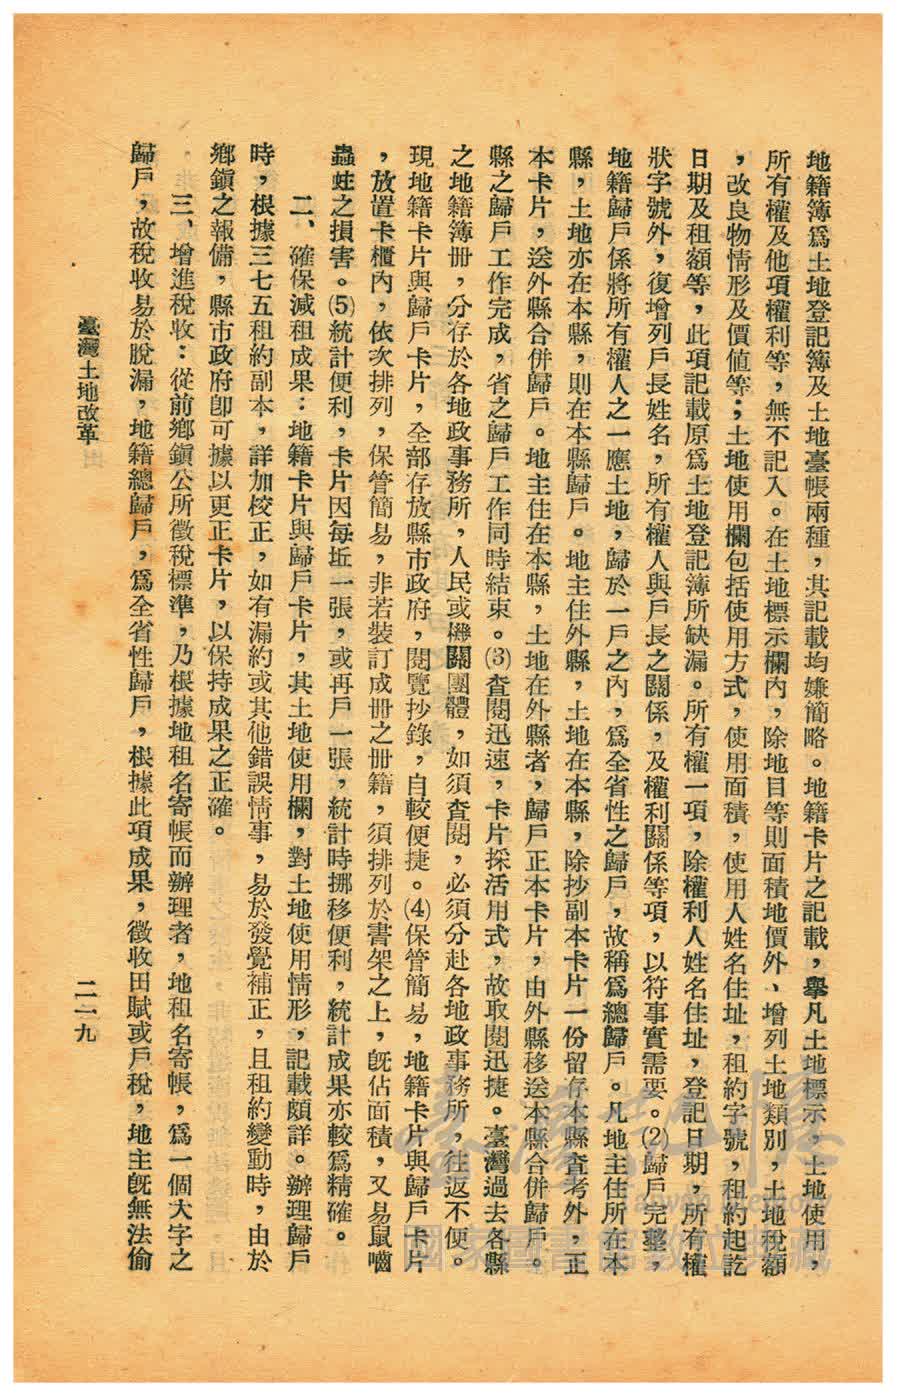 地籍簿爲土地登記簿及土地臺帳兩種，其記載均嫌簡略。地籍卡片之記載，舉凡土地標示，土地使用，
所有權及他項權利等，無不記入。在土地標示欄內，除地目等則面積地價外、增列土地類別，土地稅額
，改良物情形及價值等；土地使用欄包括使用方式，使用面積，使用人姓名住址，租約字號，租約起訖
日期及租額等，此項記載原爲土地登記簿所缺漏。所有權一項，除權利人姓名住址，登記日期，所有權
狀字號外，復增列戶長姓名，所有權人與戶長之關係，及權利關係等項，以符事實需要。⑵歸戶完整，
地籍歸戶係將所有權人之一應土地，歸於一戶之內，爲全省性之歸戶，故稱爲總歸戶。凡地主住所在本
縣，土地亦在本縣，則在本縣歸戶。地主住外縣，土地在本縣，除抄副本卡片一份留存本縣查考外，正
本卡片，送外縣合併歸戶。地主住在本縣，土地在外縣者，歸戶正本卡片，由外縣移送本縣合併歸戶。
縣之歸戶工作完成，省之歸戶工作同時結束。⑶查閱迅速，卡片採活用式，故取閱迅捷。臺灣過去各縣
之地籍簿冊，分存於各地政事務所，人民或機關團體，如須查閱，必須分赴各地政事務所，往返不便。
現地籍卡片與歸戶卡片，全部存放縣市政府，閱覽抄錄，自較便捷。⑷保管簡易，地籍卡片與歸戶卡片
，放置卡櫃內，依次排列，保管簡易，非若裝訂成冊之册籍，須排列於書架之上，旣佔面積，又易鼠嚙
蟲蛀之損害。⑸統計便利，卡片因每坵一張，或再戶一張，統計時挪移便利，統計成果亦較爲精確。
二、確保減租成果：地籍卡片與歸戶卡片，其土地使用欄，對土地使用情形，記載頗詳。辦理歸戶
時，根據三七五租約副本，詳加校正，如有漏約或其他錯誤情事，易於發覺補正，且租約變動時，由於
鄉鎮之報備，縣市政府卽可據以更正卡片，以保持成果之正確。
三、增進稅收：從前鄉鎮公所徵稅標準，乃根據地租名寄帳而辦理者，地租名寄帳，爲一個大字之
歸戶，故稅收易於脫漏，地籍總歸戶，爲全省性歸戶，根據此項成果，徵收田賦或戶稅，地主旣無法偷
臺灣土地改革
二一九
國家圖書館數位典藏
臺灣記憶